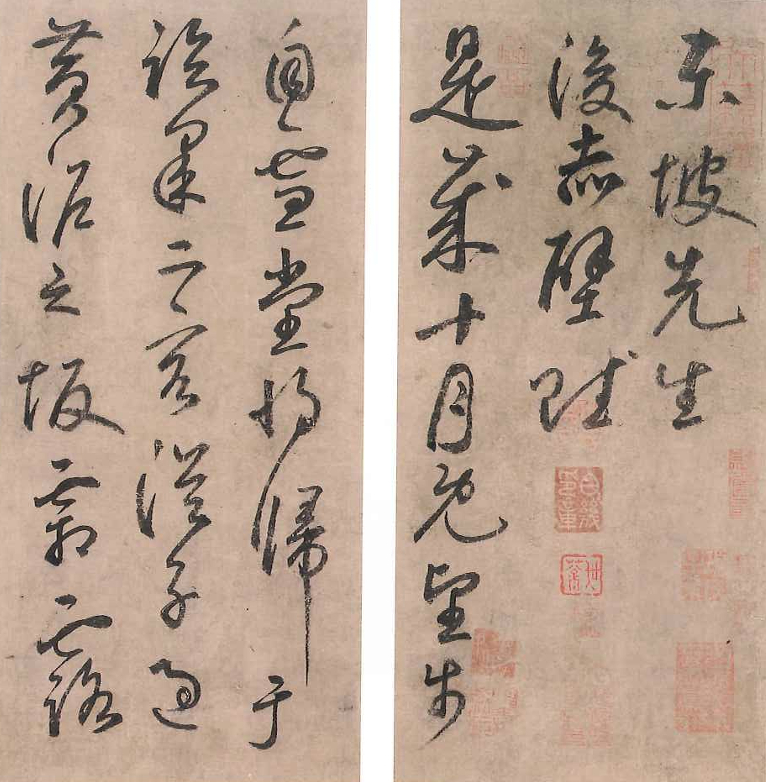 東坡先生
後赤壁賦
是歲十月既望步
自雪堂將歸于
臨皋二客從予過
黃泥之坂霜露